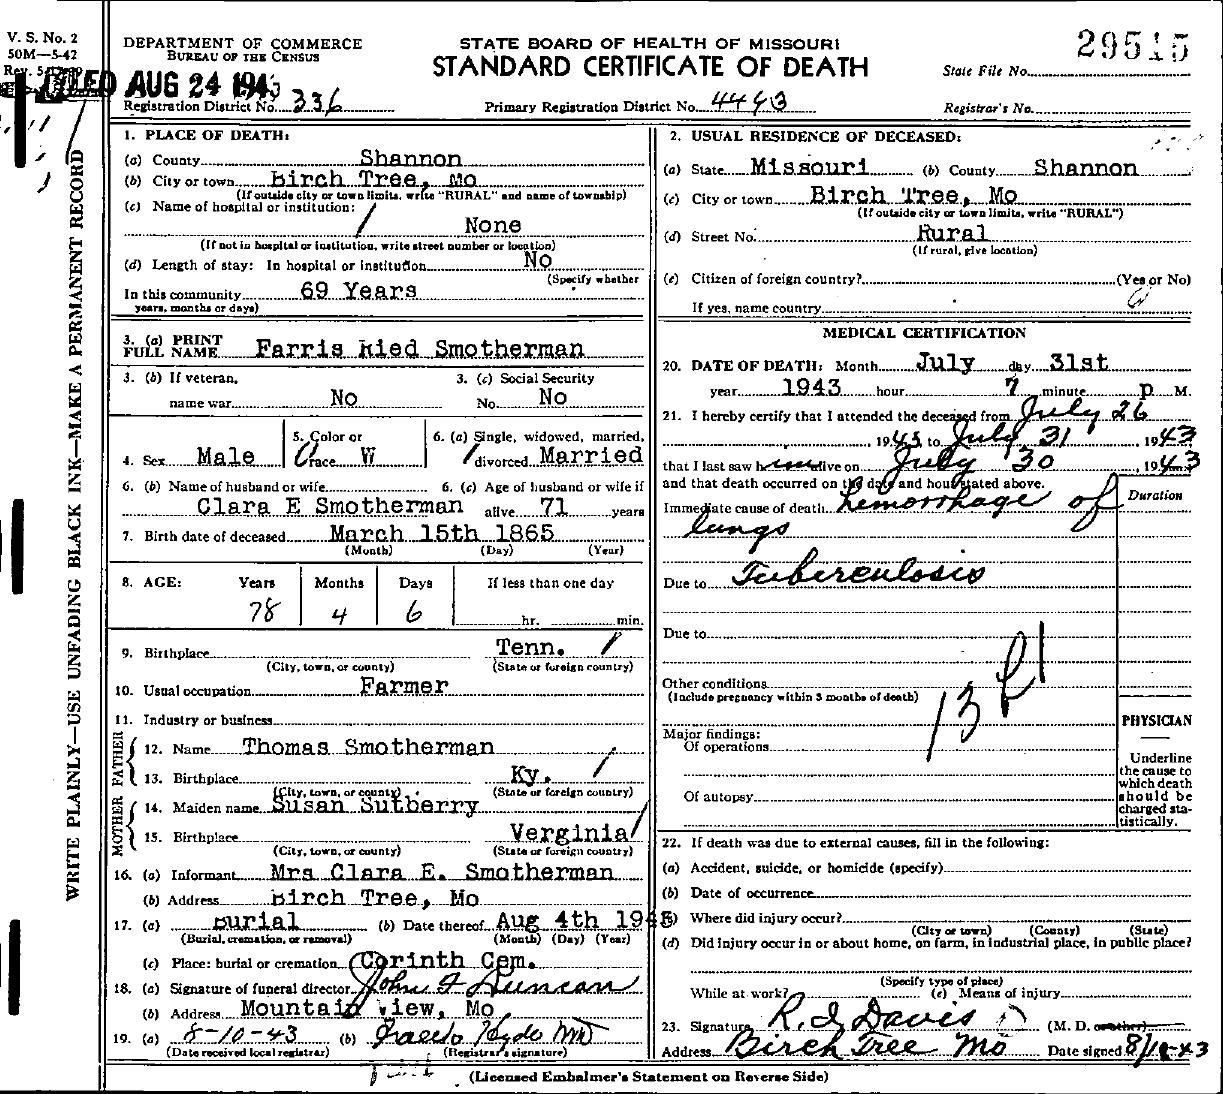 V. S. No. 2
50M—5-42
DEPARTMENT OF COMMERCE
BUREAU OF THE CENSUS
STATE BOARD OF HEALTH OF MISSOURI
STANDARD CERTIFICATE OF DEATH
29515
State File No.
FILED AUG 24 1943
Registration District No. 336
Primary Registration District No. 4493
Registrar's No.
WRITE PLAINLY—USE UNFADING BLACK INK—MAKE A PERMANENT RECORD
1. PLACE OF DEATH:
(a) County Shannon
(b) City or town Birch Tree, Mo
(If outside city or town limits, write "RURAL" and name of township)
(c) Name of hospital or institution:
None
(If not in hospital or institution, write street number or location)
(d) Length of stay: In hospital or institution No
(Specify whether
In this community 69 Years
years, months or days)
3. (a) PRINT
FULL NAME Farris Ried Smotherman
3. (b) If veteran,
name war No
3. (c) Social Security
No. No
4. Sex Male
5. Color or
race W
6. (a) Single, widowed, married,
divorced Married
6. (b) Name of husband or wife
Clara E Smotherman
6. (c) Age of husband or wife if
alive 71 years
7. Birth date of deceased March 15th 1865
(Month) (Day) (Year)
8. AGE: Years Months Days If less than one day
78 4 6 hr. min.
9. Birthplace Tenn.
(City, town, or county) (State or foreign country)
10. Usual occupation Farmer
11. Industry or business
FATHER
12. Name Thomas Smotherman
13. Birthplace Ky.
(City, town, or county) (State or foreign country)
MOTHER
14. Maiden name Susan Sutberry
15. Birthplace Verginia
(City, town, or county) (State or foreign country)
16. (a) Informant Mrs Clara E. Smotherman
(b) Address Birch Tree, Mo
17. (a) Burial (b) Date thereof Aug 4th 1943
(Burial, cremation, or removal) (Month) (Day) (Year)
(c) Place: burial or cremation Corinth Cem.
18. (a) Signature of funeral director John F Duncan
(b) Address Mountain View, Mo
19. (a) 8-10-43 (b) Hyde MD
(Date received local registrar) (Registrar's signature)
2. USUAL RESIDENCE OF DECEASED:
(a) State Missouri (b) County Shannon
(c) City or town Birch Tree, Mo
(If outside city or town limits, write "RURAL")
(d) Street No. Rural
(If rural, give location)
(e) Citizen of foreign country? (Yes or No)
If yes, name country
MEDICAL CERTIFICATION
20. DATE OF DEATH: Month July day 31st
year 1943 hour 7 minute P M.
21. I hereby certify that I attended the deceased from July 26
1943 to July 31, 1943
that I last saw him alive on July 30, 1943
and that death occurred on the date and hour stated above.
Immediate cause of death hemorrhage of
lungs
Duration
Due to Tuberculosis
Due to
Other conditions
(Include pregnancy within 3 months of death)
13 f1
Major findings:
Of operations
Of autopsy
PHYSICIAN
Underline
the cause to
which death
should be
charged sta-
tistically.
22. If death was due to external causes, fill in the following:
(a) Accident, suicide, or homicide (specify)
(b) Date of occurrence
(c) Where did injury occur?
(City or town) (County) (State)
(d) Did injury occur in or about home, on farm, in industrial place, in public place?
(Specify type of place)
While at work? (e) Means of injury
23. Signature R. I. Davis (M. D. or other)
Address Birch Tree Mo Date signed 8/10-43
(Licensed Embalmer's Statement on Reverse Side)